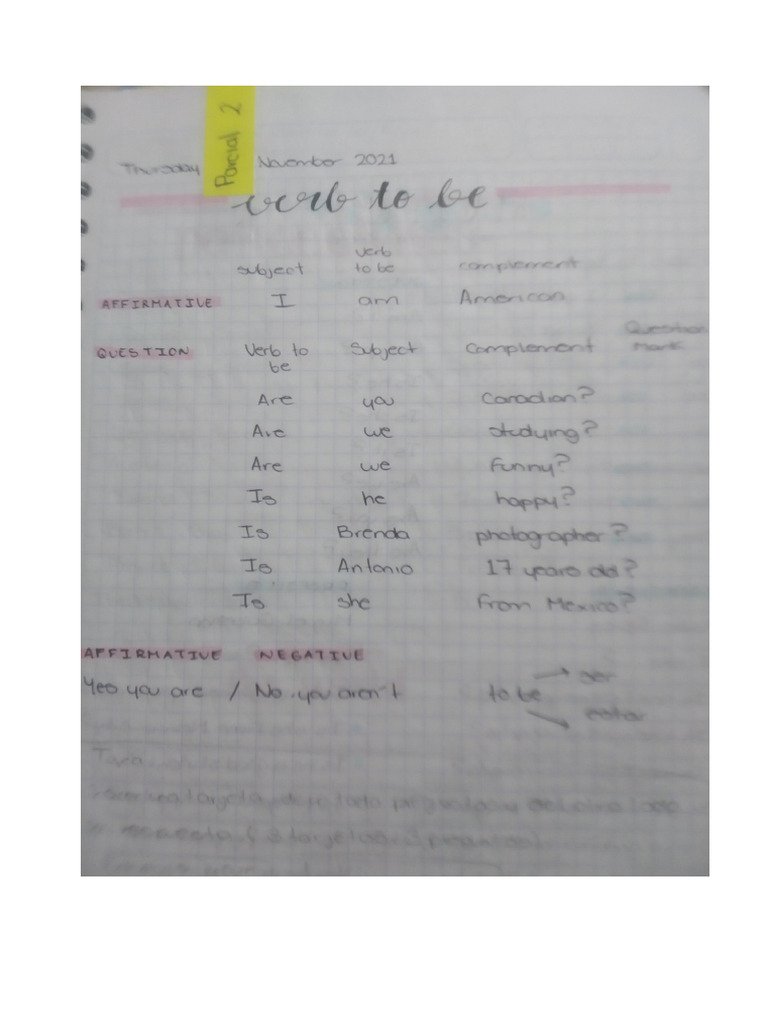 Parcial 2
Thursday November 2021
verb to be
subject verb to be complement
AFFIRMATIVE I am American
QUESTION Verb to be Subject Complement Question mark
Are you Canadian?
Are we studying?
Are we funny?
Is he happy?
Is Brenda photographer?
Is Antonio 17 years old?
Is she from Mexico?
AFFIRMATIVE NEGATIVE
Yes you are / No, you aren't to be → ser
→ estar